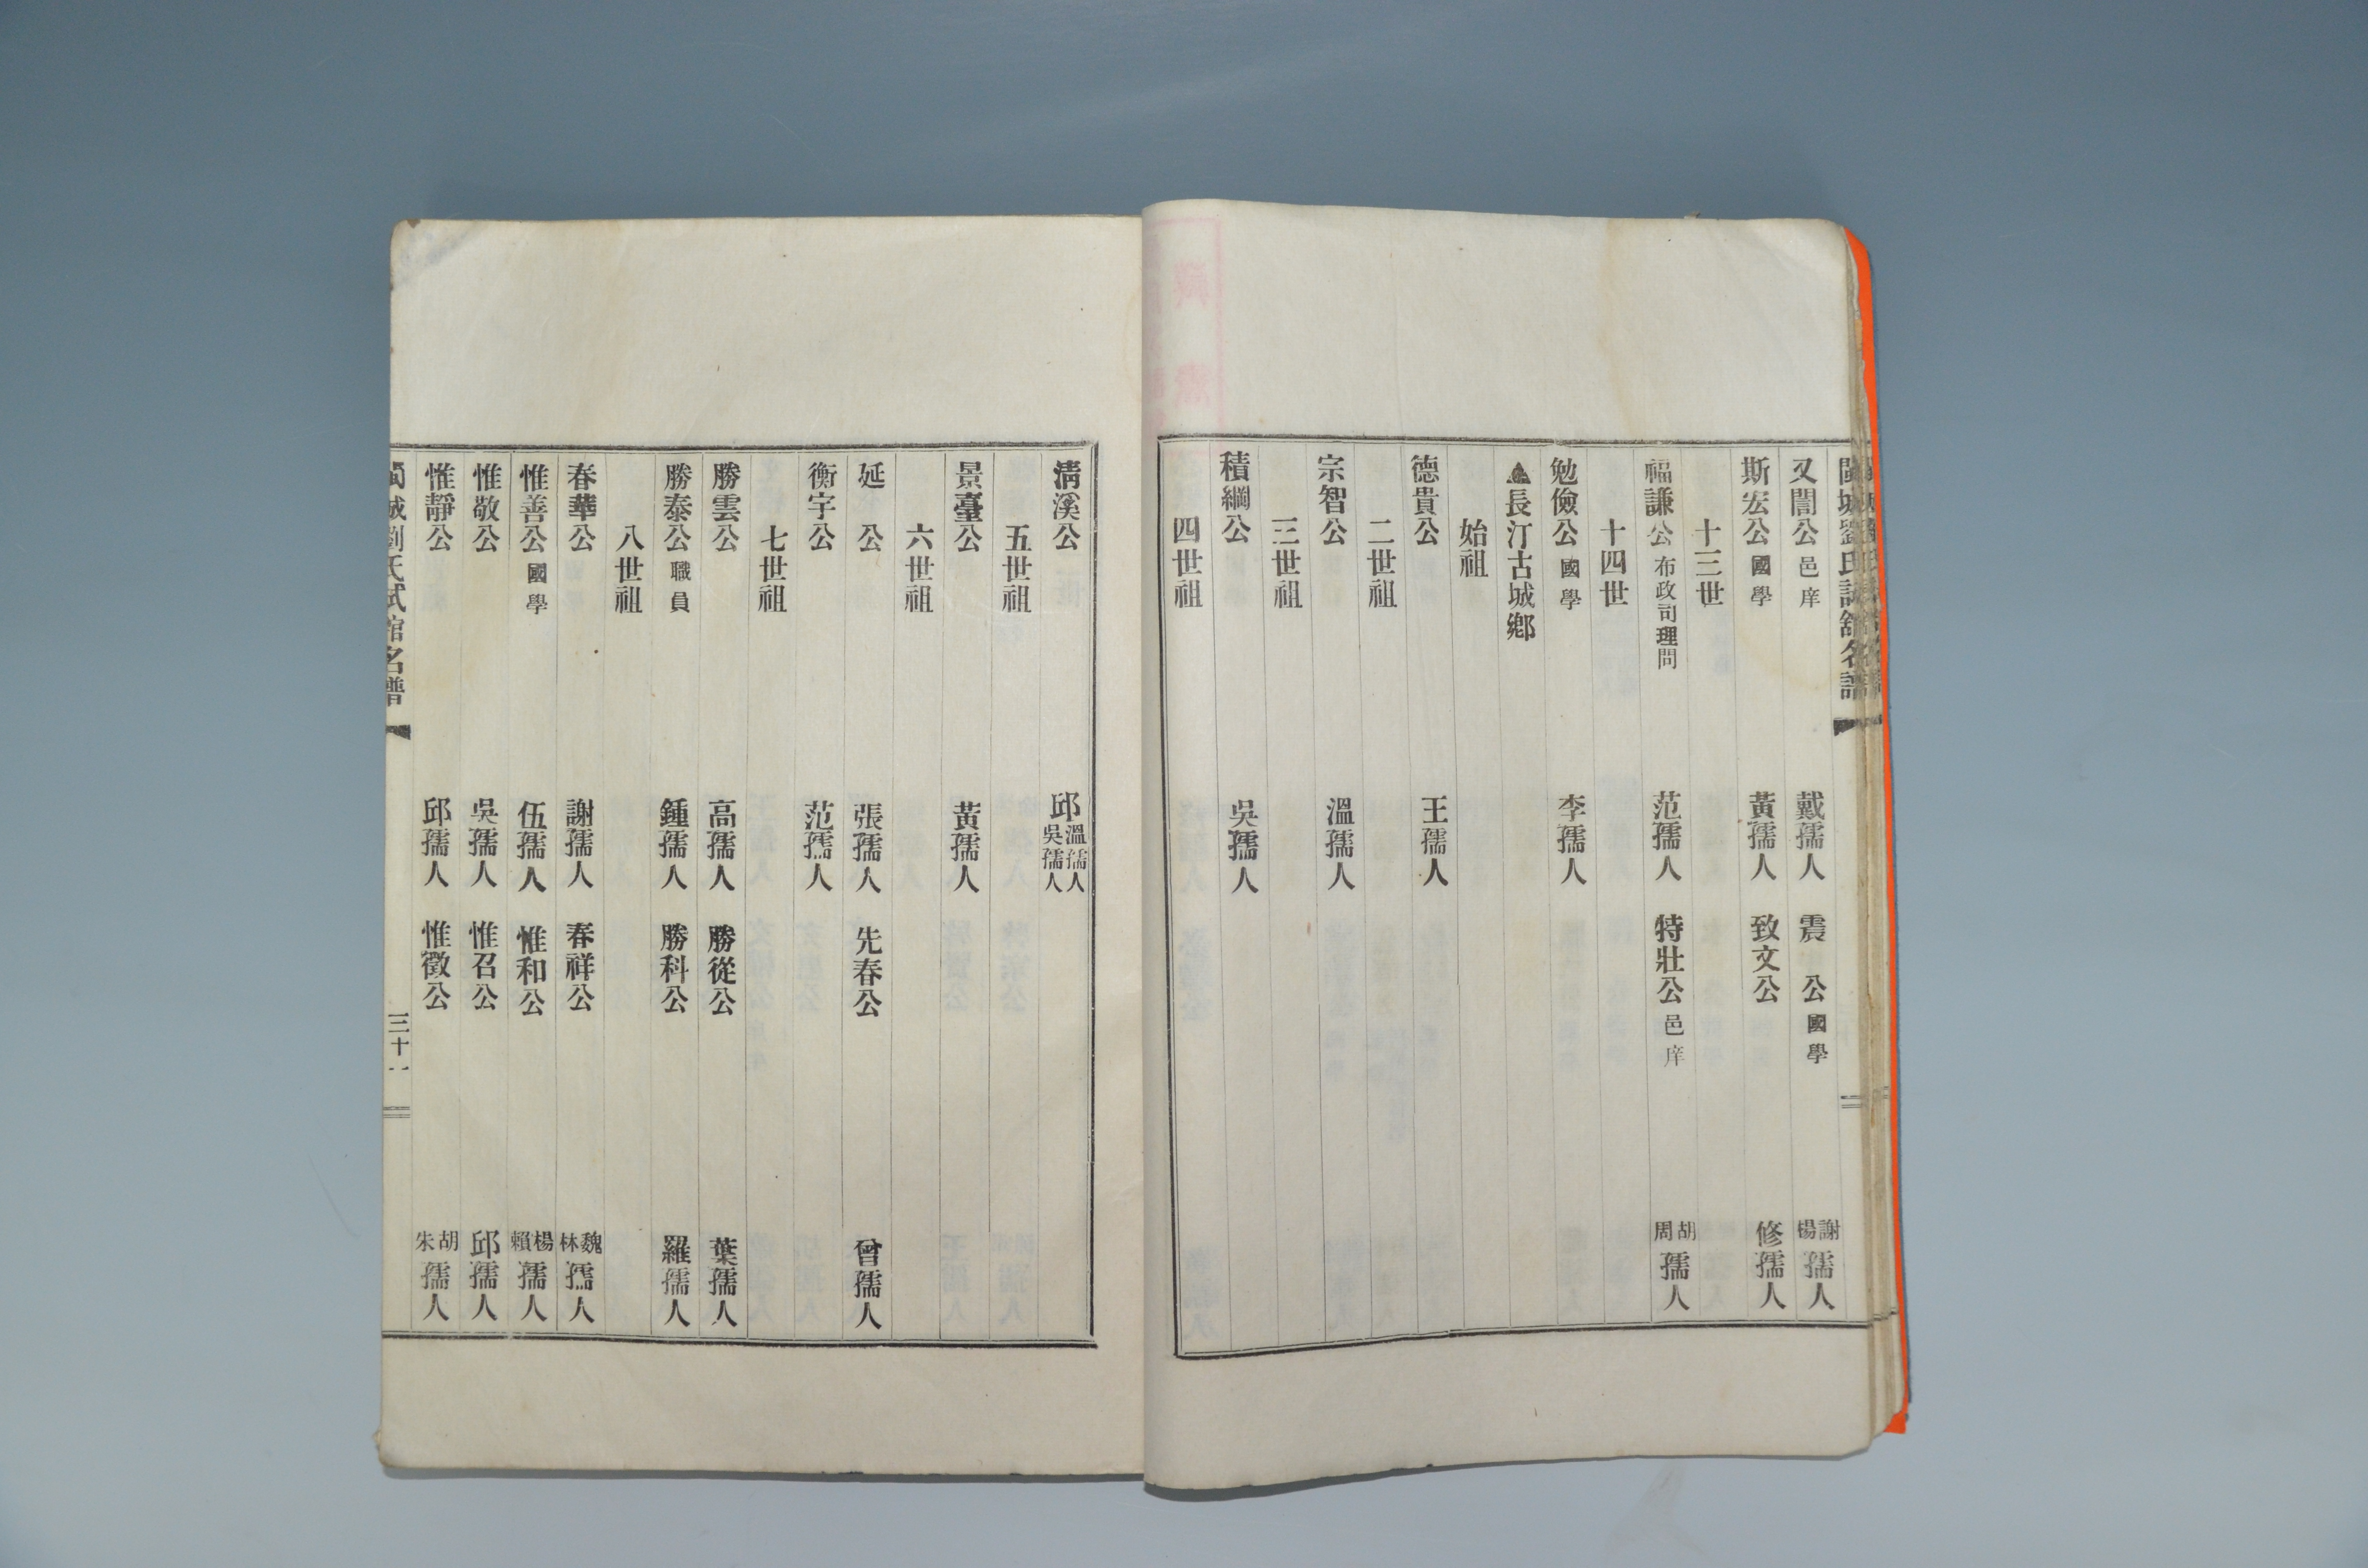 閩城劉氏試館名譜
又誾公 邑庠 戴孺人 震公 國學 謝楊孺人
斯宏公 國學 黃孺人 致文公 修孺人
十三世
福謙公 布政司理問 范孺人 特壯公 邑庠 胡周孺人
十四世
勉儉公 國學 李孺人
▲長汀古城鄉
始祖
德貴公 王孺人
二世祖
宗智公 溫孺人
三世祖
積綱公 吳孺人
四世祖
清溪公 邱溫孺人吳孺人
五世祖
景臺公 黃孺人
六世祖
延公 張孺人 先春公 曾孺人
衡宇公 范孺人
七世祖
勝雲公 高孺人 勝從公 葉孺人
勝泰公 職員 鍾孺人 勝科公 羅孺人
八世祖
春華公 謝孺人 春祥公 魏林孺人
惟善公 國學 伍孺人 惟和公 楊賴孺人
惟敬公 吳孺人 惟召公 邱孺人
惟靜公 邱孺人 惟徵公 胡朱孺人
閩城劉氏試館名譜 三十一